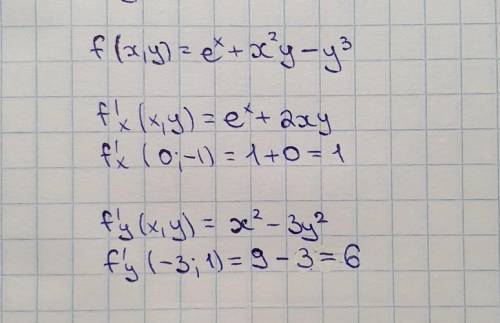 f(x,y) = eˣ + x²y − y³
f'ₓ(x,y) = eˣ + 2xy
f'ₓ(0;−1) = 1+0 = 1
f'y(x,y) = x² − 3y²
f'y(−3;1) = 9 − 3 = 6